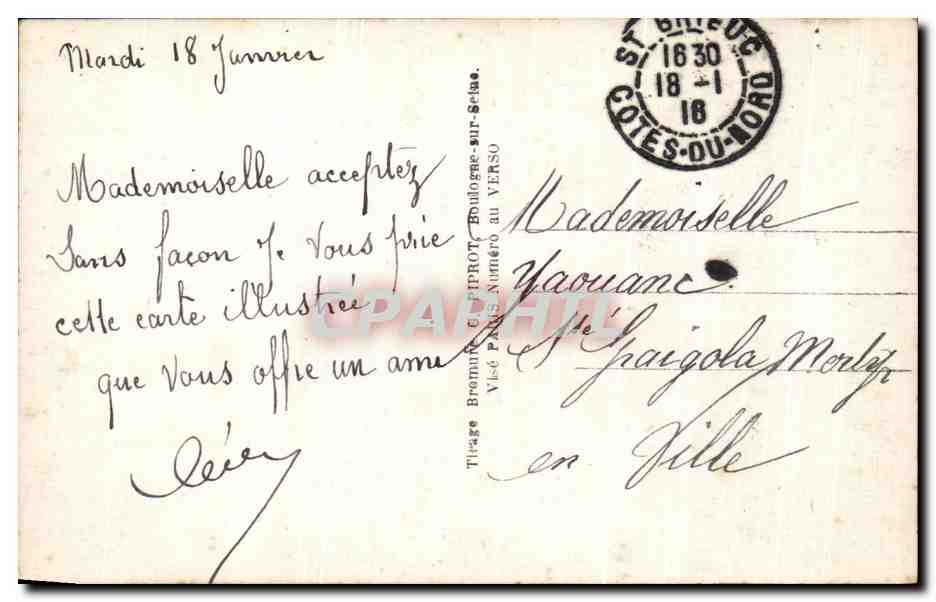 Mardi 18 Janvier
Mademoiselle acceptez
Sans façon Je Vous prie
cette carte illustrée
que Vous offre un ami
Tirage Bromure C. PIPROT, Boulogne-sur-Seine.
Visé PARIS Numéro au VERSO
ST BRIEUC
16 30
18 -1
16
COTES-DU-NORD
Mademoiselle
Yaouanc
Sté
en Ville
CPAPHIL